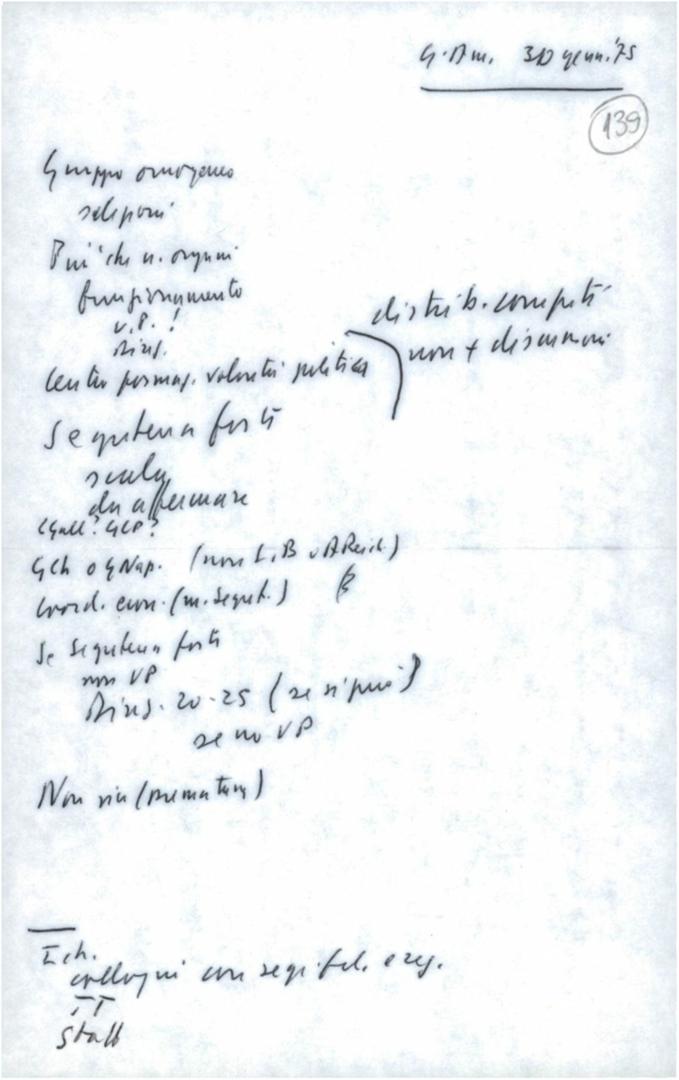 G. Am. 30 genn. '75
139
Gruppo omogeneo
selezioni
Piu' che n. organi
funzionamento
U.P.!
Direz.
Centro formaz. volontà politica
distrib. compiti
non + discussioni
Segreteria forte
scelta
da affermare
GCh o GNap. (non L.B o AReich.)
coord. con (m. Segret.)
Se segreteria forte
non UP
Direz. 20-25 (se si può)
se no UP
Non sia (prematura)
colloqui con segr. fed. e reg.
Staff